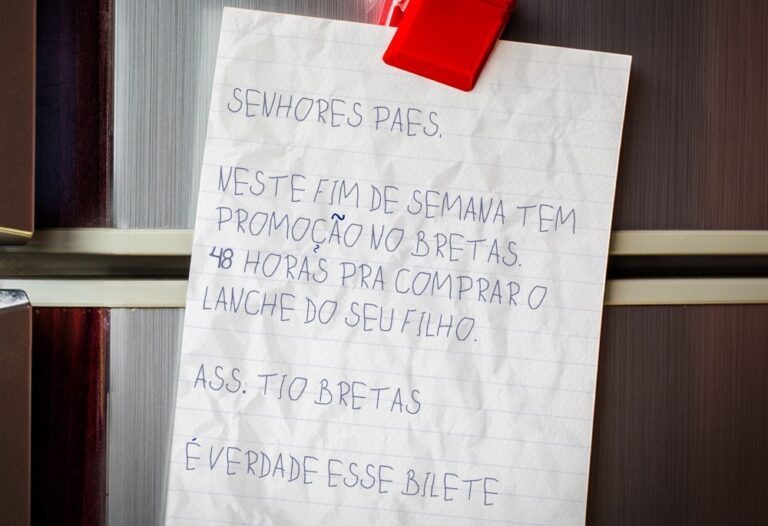 SENHORES PAES,
NESTE FIM DE SEMANA TEM
PROMOÇÃO NO BRETAS.
48 HORAS PRA COMPRAR O
LANCHE DO SEU FILHO.
ASS: TIO BRETAS
É VERDADE ESSE BILETE